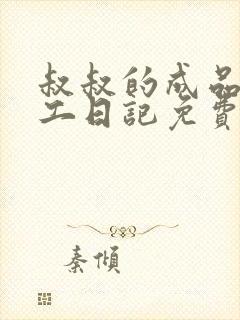 叔叔的成品
工日記免費
秦傾